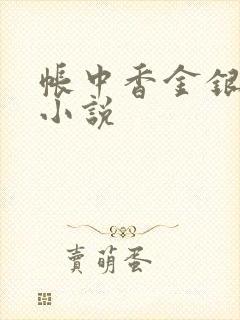 帳中香金銀
小說
賣萌蛋